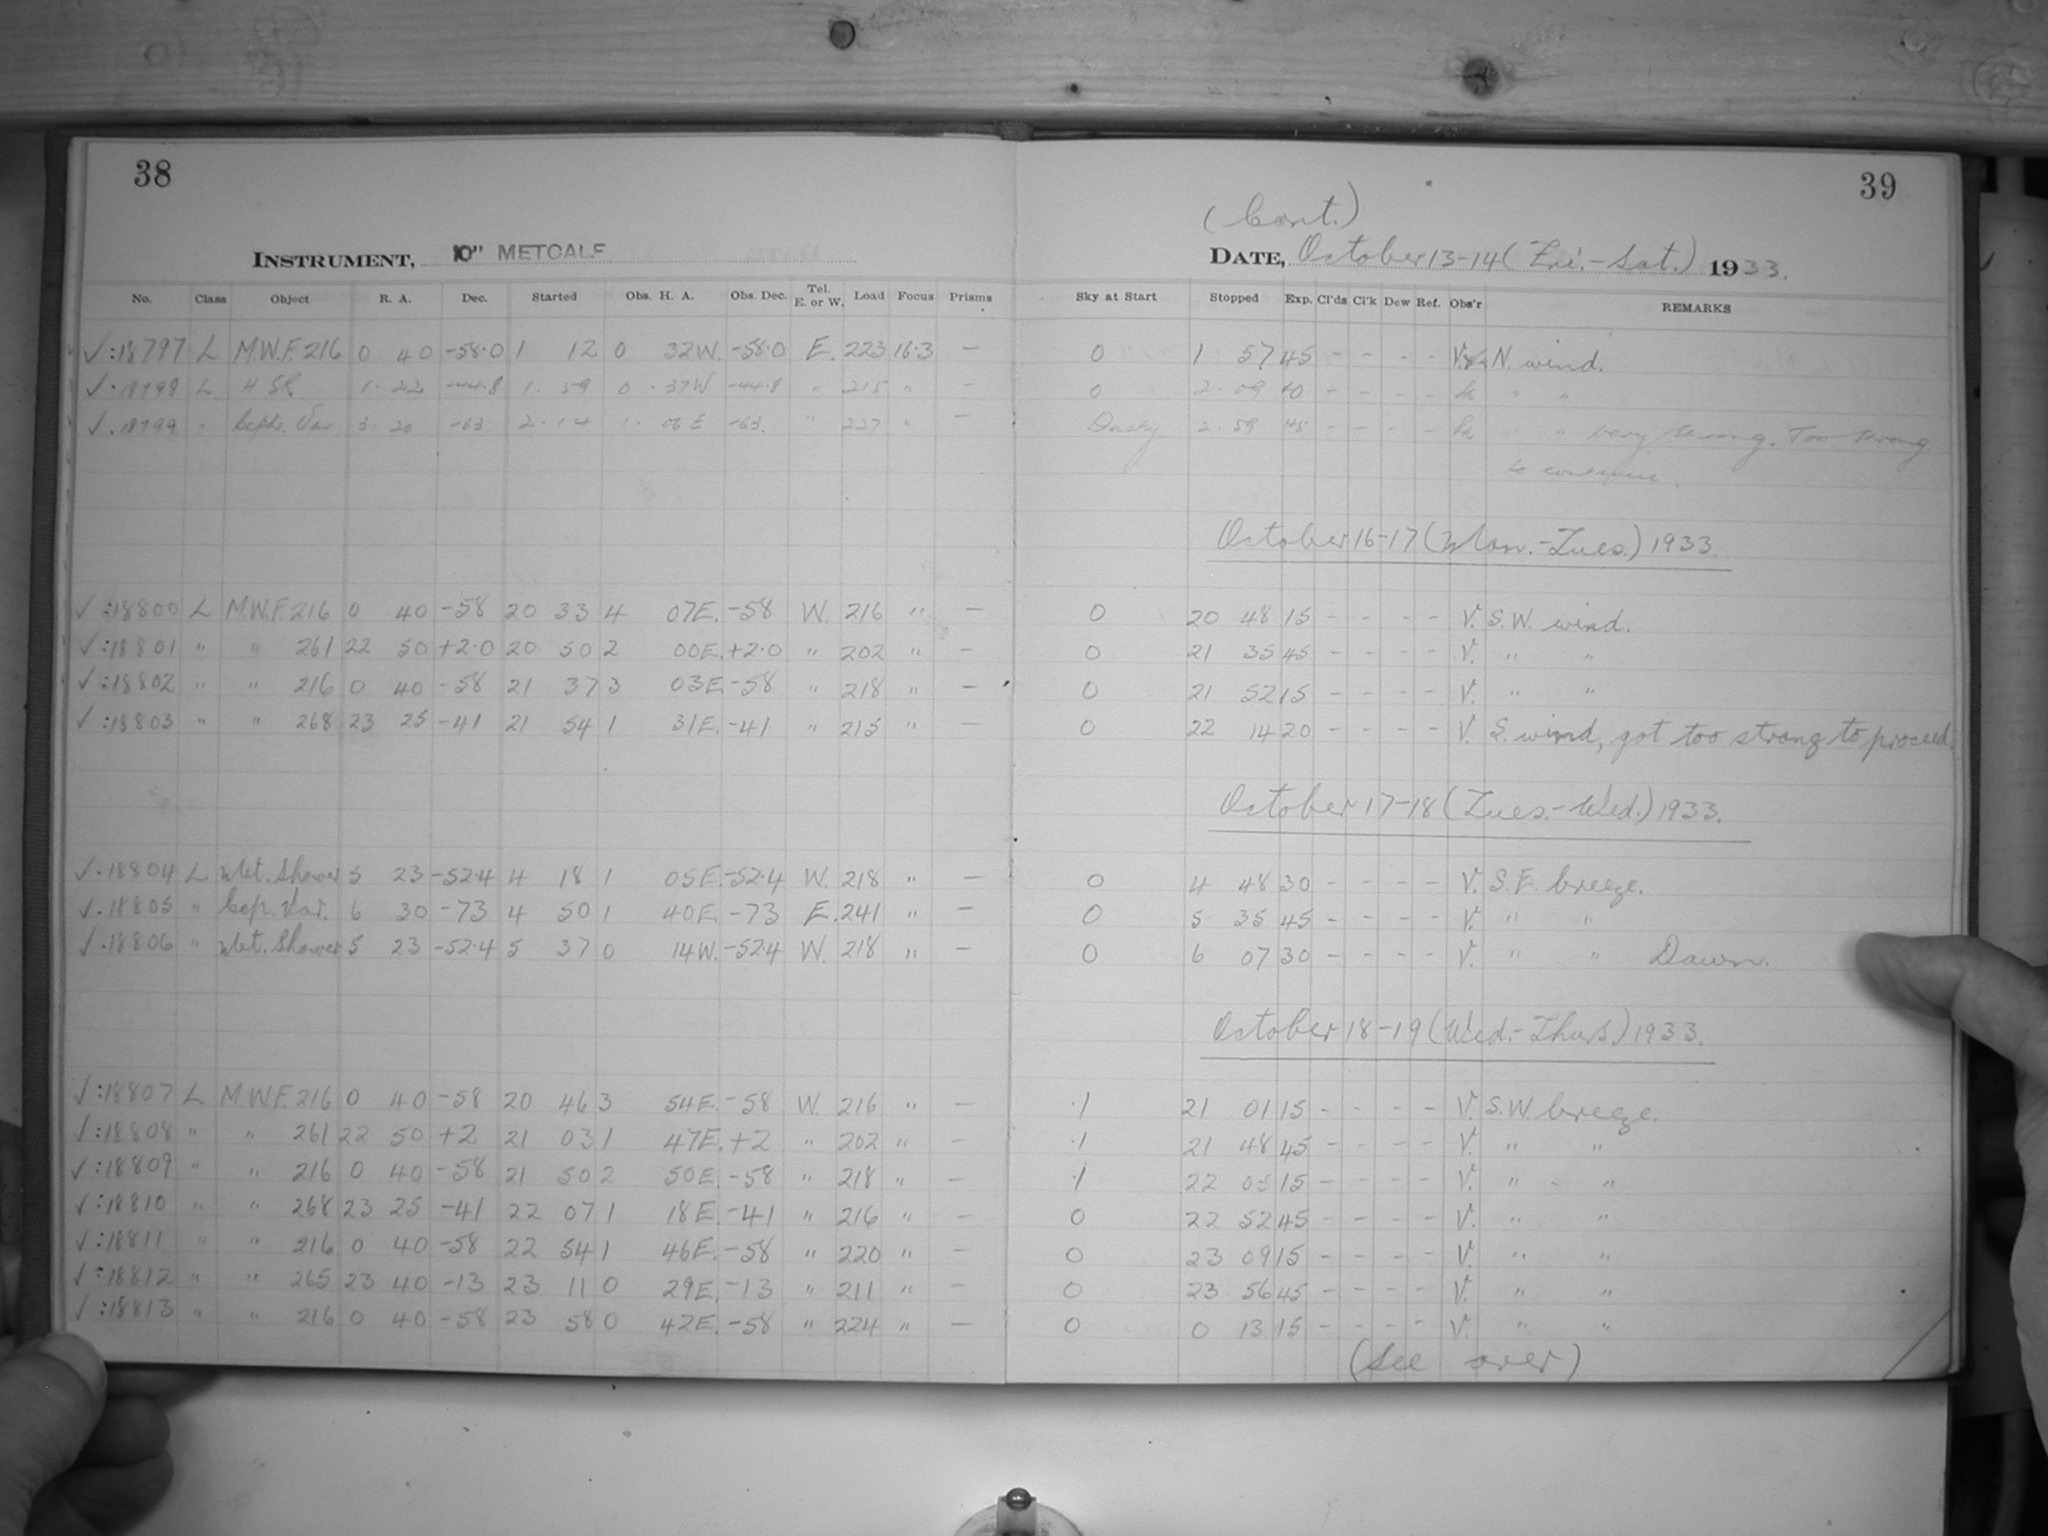 38
39
(Cont.)
INSTRUMENT, 10" METCALF
DATE, October 13-14 (Fri.-Sat.) 1933.
No. Class Object R. A. Dec. Started Obs. H. A. Obs. Dec. Tel. E. or W. Load Focus Prisms Sky at Start Stopped Exp. Cl'ds Cl'k Dew Ref. Obs'r REMARKS
√:18797 L M.W.F. 216 0 40 -58.0 1 12 0 32W. -58.0 E. 223 16.3 — 0 1 57 45 - - - - N. wind.
√.18798 L 1. 22 -44.8 1. 59 0. 37W -44.8 " 215 " — 0 2. 09 10 - - - - " "
√.18799 " Ceph. Var 3 20 -63 2. 14 1. 06 E -63. " 227 " — Dusky 2. 59 45 - - - - " " very strong. Too strong
to continue.
October 16-17 (Mon.-Tues.) 1933.
√:18800 L M.W.F. 216 0 40 -58 20 33 4 07E. -58 W. 216 " — 0 20 48 15 - - - - V. S.W. wind.
√:18801 " " 261 22 50 +2.0 20 50 2 00E. +2.0 " 202 " — 0 21 35 45 - - - - V. " "
√:18802 " " 216 0 40 -58 21 37 3 03E -58 " 218 " — 0 21 52 15 - - - - V. " "
√:18803 " " 268 23 25 -41 21 54 1 31E. -41 " 215 " — 0 22 14 20 - - - - V. S. wind, got too strong to proceed.
October 17-18 (Tues.-Wed.) 1933.
√.18804 L Met. Shower 5 23 -52.4 4 18 1 05E. -52.4 W. 218 " — 0 4 48 30 - - - - V. S.E. breeze.
√.18805 " Cep. Var. 6 30 -73 4 50 1 40E. -73 E. 241 " — 0 5 35 45 - - - - V. " "
√.18806 " Met. Shower 5 23 -52.4 5 37 0 14W. -52.4 W. 218 " — 0 6 07 30 - - - - V. " " Dawn.
October 18-19 (Wed.-Thurs.) 1933.
√:18807 L M.W.F. 216 0 40 -58 20 46 3 54E. -58 W. 216 " — .1 21 01 15 - - - - V. S.W. breeze.
√:18808 " " 261 22 50 +2 21 03 1 47E. +2 " 202 " — .1 21 48 45 - - - - V. " "
√:18809 " " 216 0 40 -58 21 50 2 50E. -58 " 218 " — .1 22 05 15 - - - - V. " "
√:18810 " " 268 23 25 -41 22 07 1 18E. -41 " 216 " — 0 22 52 45 - - - - V. " "
√:18811 " " 216 0 40 -58 22 54 1 46E. -58 " 220 " — 0 23 09 15 - - - - V. " "
√:18812 " " 265 23 40 -13 23 11 0 29E. -13 " 211 " — 0 23 56 45 - - - - V. " "
√:18813 " " 216 0 40 -58 23 58 0 42E. -58 " 224 " — 0 0 13 15 - - - - V. " "
(See over)